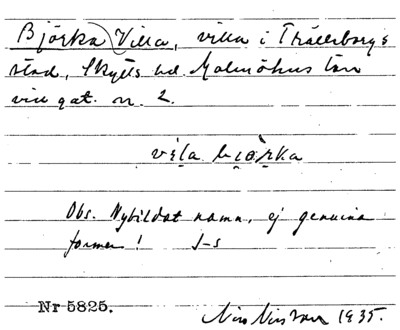 Björka Villa, villa i Trälleborgs
stad, Skytts hd Malmöhus län
vid gat. nr 2.
vila biörka
Obs. Nybildat namn, ej genuina
former! J-s
Nr 5825.
Nils Nilsson 1935.